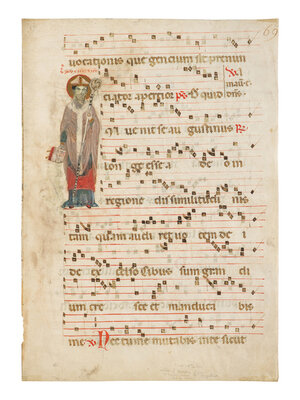 69
uocationis que gencium sit prenun
ciator apertior
Inue nit se au gustinus R
lon ge esse a de o in
regione dis similitudi nis
tam quam audi ret uo cem de i
de ex celso Cibus sum gran di
um cre sce et manduca bis
me Nec tu me mutabis in te sicut